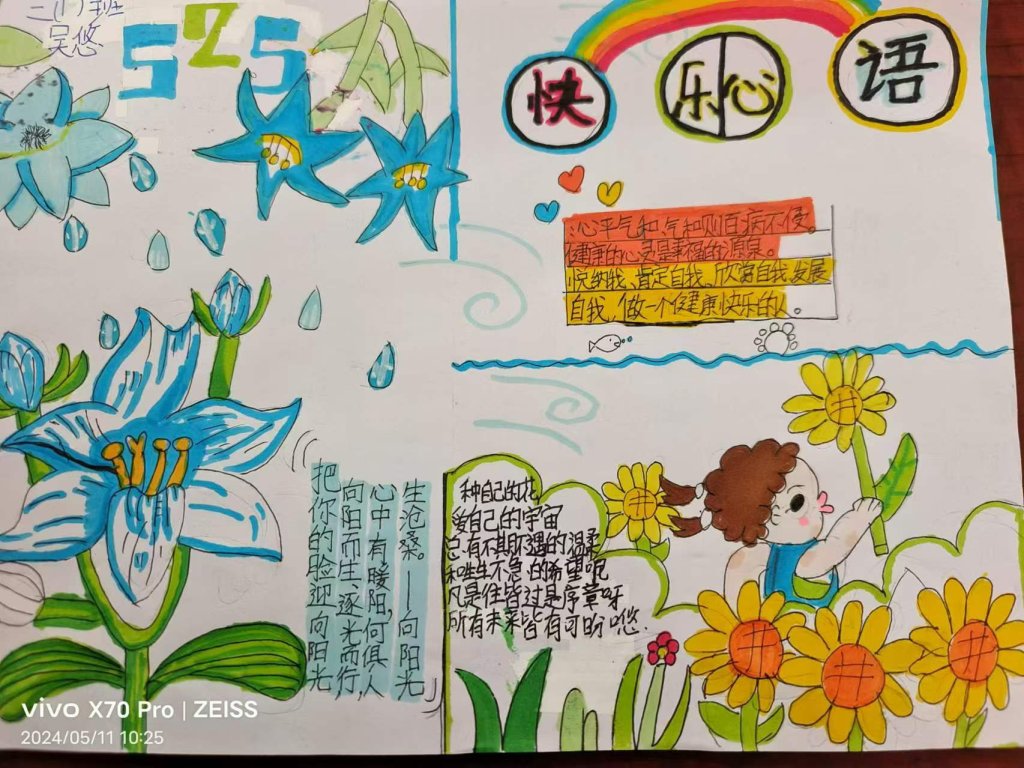 三(1)班
吴悠
525
快乐心语
心平气和,气和则百病不侵。
健康的心灵是幸福的源泉。
悦纳我、肯定自我、欣赏自我、发展
自我,做一个健康快乐的人。
生沧桑。——向阳光
心中有暖阳,何惧人
向阳而生,逐光而行,
把你的脸迎向阳光
种自己的花
爱自己的宇宙
己有不期而遇的温柔
和生生不息的希望呢
凡是住皆过是序章呀
所有未来皆有可盼 悠.
vivo X70 Pro | ZEISS
2024/05/11 10:25